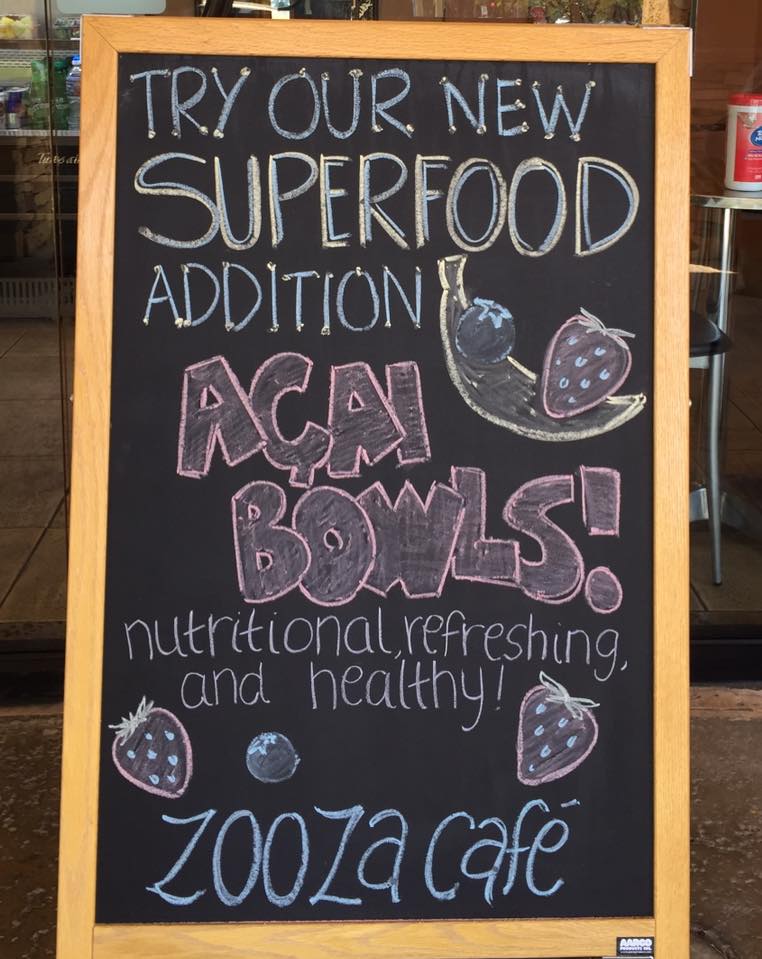 TRY OUR NEW
SUPERFOOD
ADDITION
AÇAI
BOWLS!
nutritional, refreshing,
and healthy!
ZOOZa café
AARCO
PRODUCTS INC.